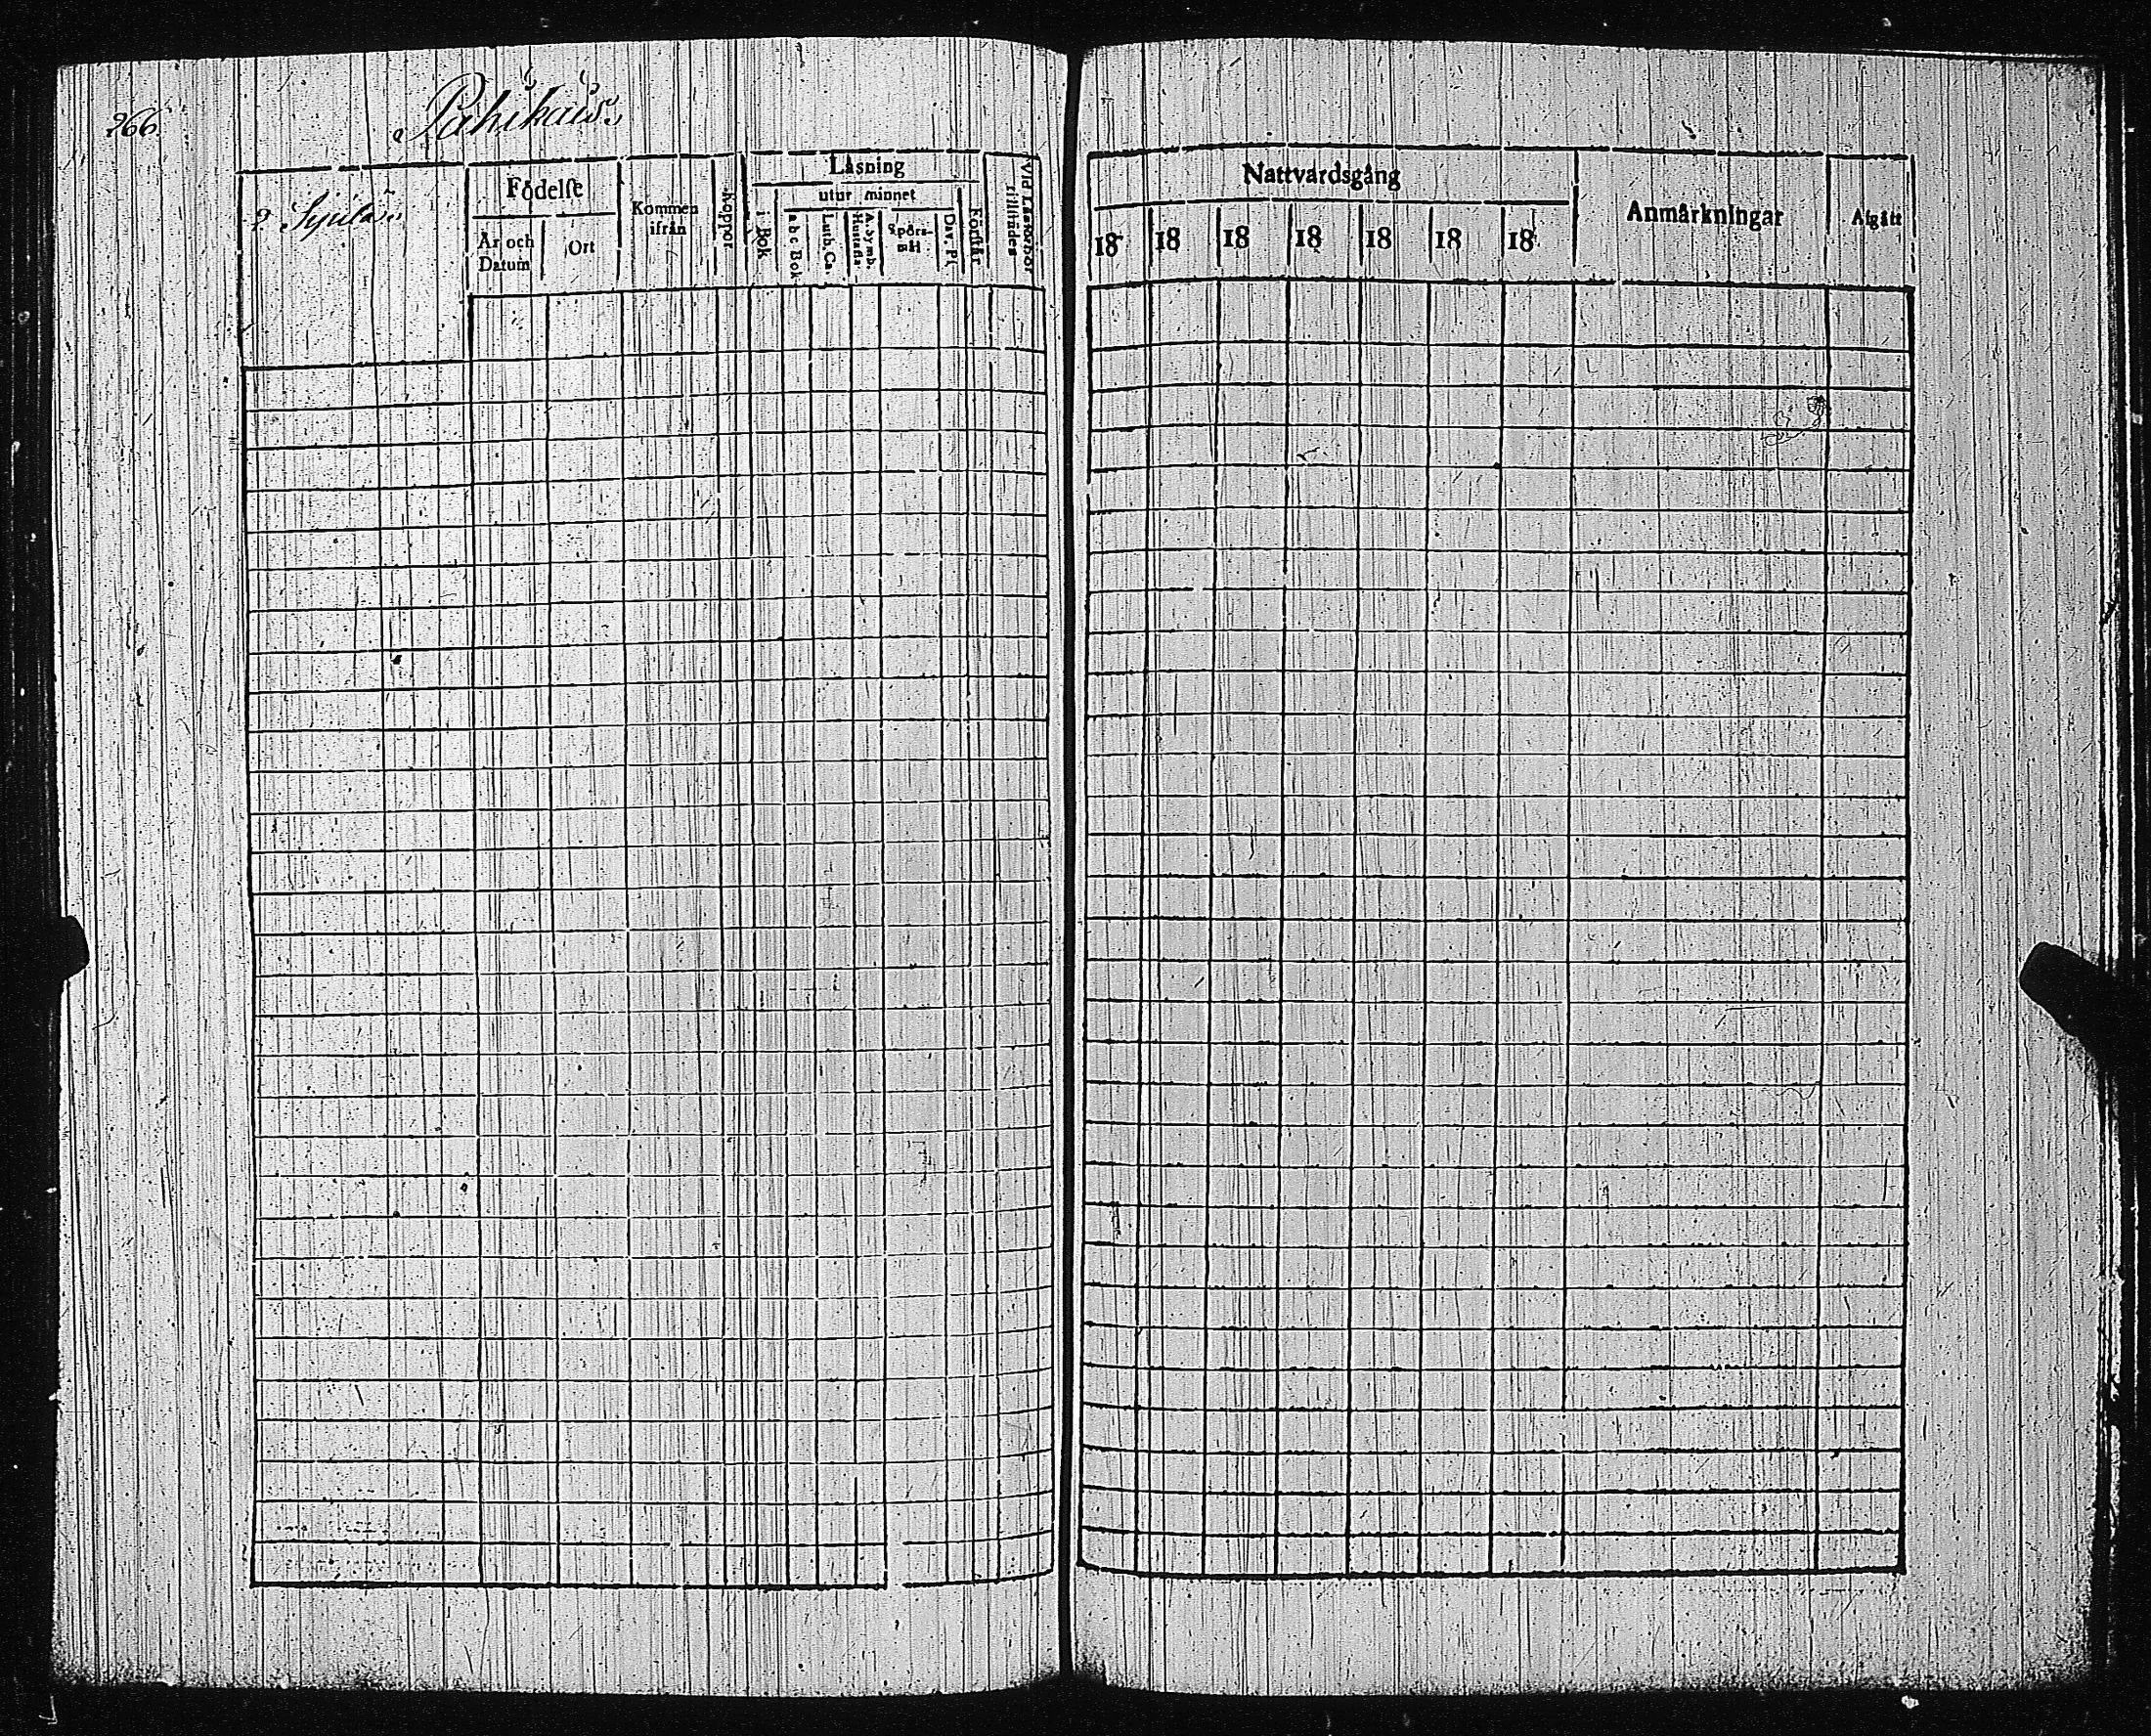 266.
Pahikais.
2. Syrilä
Födelse
År och Datum
Ort
Kommen ifrån
Koppor
Läsning
i Bok
utur minnet
a b c Bok
Luth. Ca.
A. Symb. Hustafla
Spörsmål
Dav. Ps.
Förstår
Vid Läsförhör tillstädes
Nattvardsgång
18 18 18 18 18 18 18
Anmärkningar
Afgått